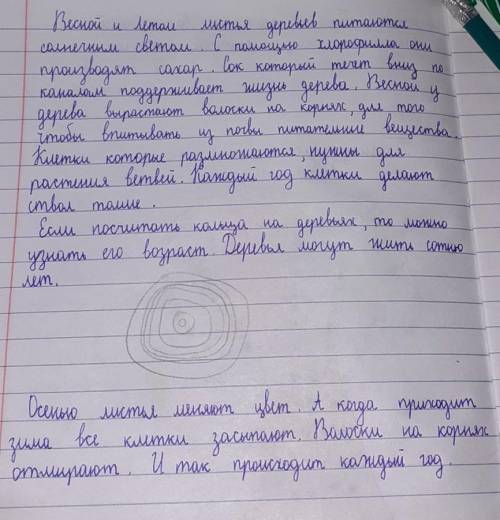 Весной и летом листья деревьев питаются
солнечным светом. С помощью хлорофилла они
производят сахар. Сок который течет вниз по
каналам поддерживает жизнь дерева. Весной у
дерева вырастают волоски на корнях, для того
чтобы впитывать из почвы питательние вещества.
Клетки которые размножаются, нужны для
растения ветвей. Каждый год клетки делают
ствол толще.
Если посчитать кольца на деревьях, то можно
узнать его возраст. Деревья могут жить сотню
лет.
Осенью листья меняют цвет. А когда приходит
зима все клетки засыпают. Волоски на корнях
отмирают. И так происходит каждый год.